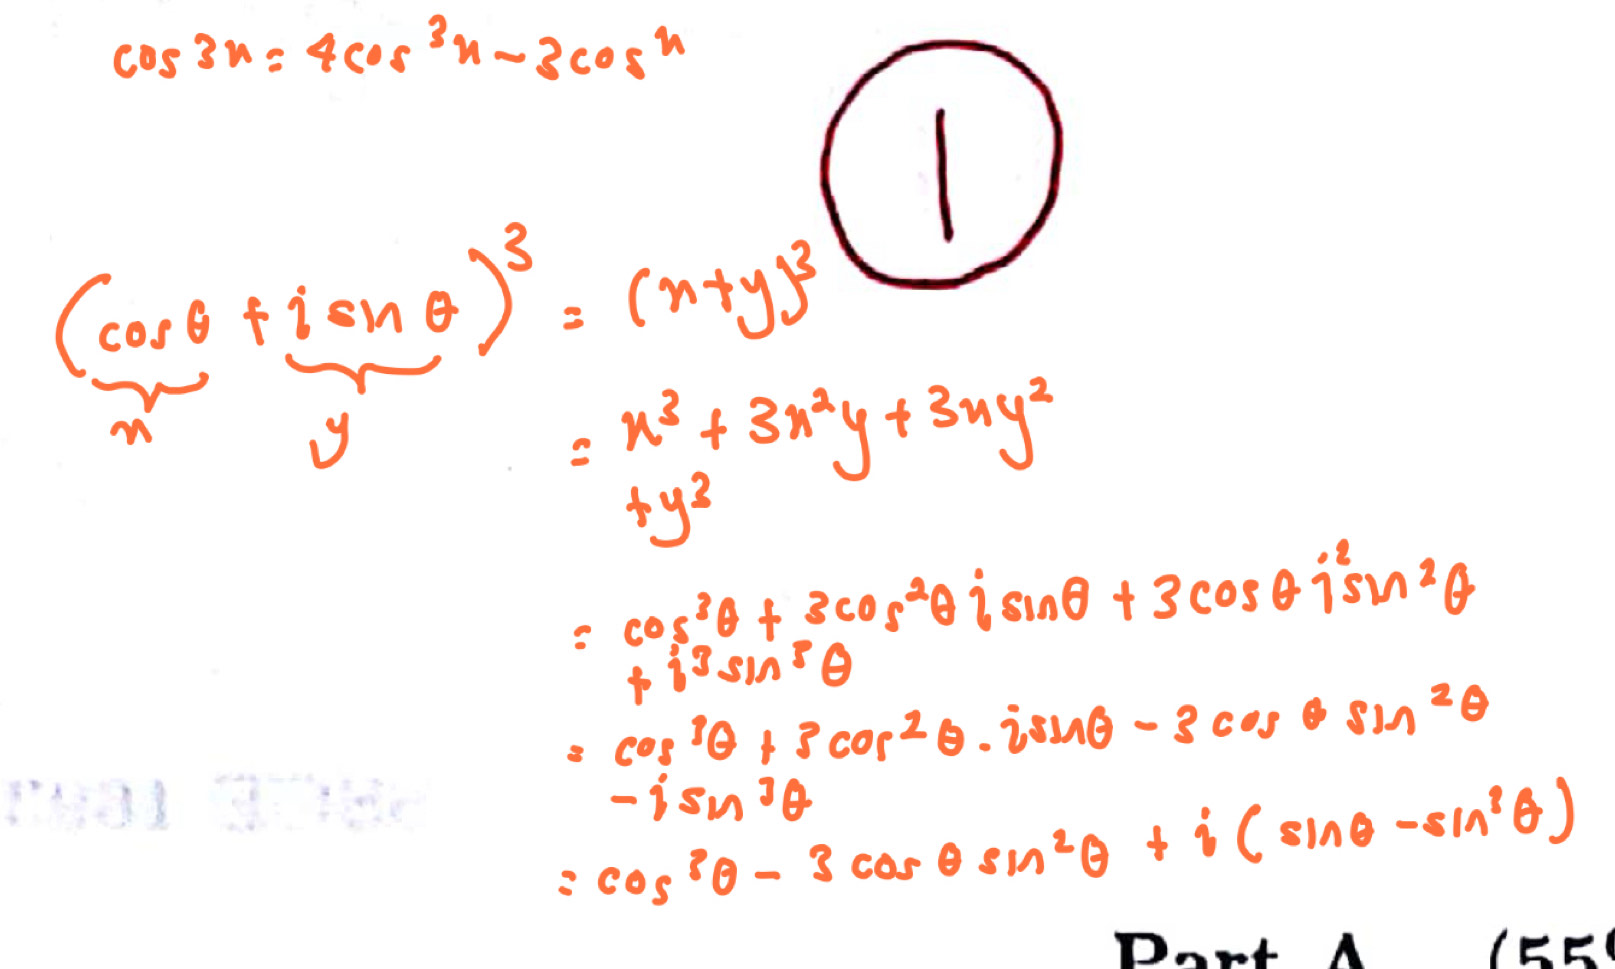 cos 3x = 4cos³x - 3cos x
1
(cosθ + i sin θ)³ = (x+y)³
x y
= x³ + 3x²y + 3xy²
+ y³
= cos³θ + 3cos²θ i sinθ + 3cosθ i² sin²θ
+ i³ sin³θ
= cos³θ + 3cos²θ . i sinθ - 3 cos θ sin²θ
- i sin³θ
= cos³θ - 3 cos θ sin²θ + i ( sinθ - sin³θ )
Part A (55